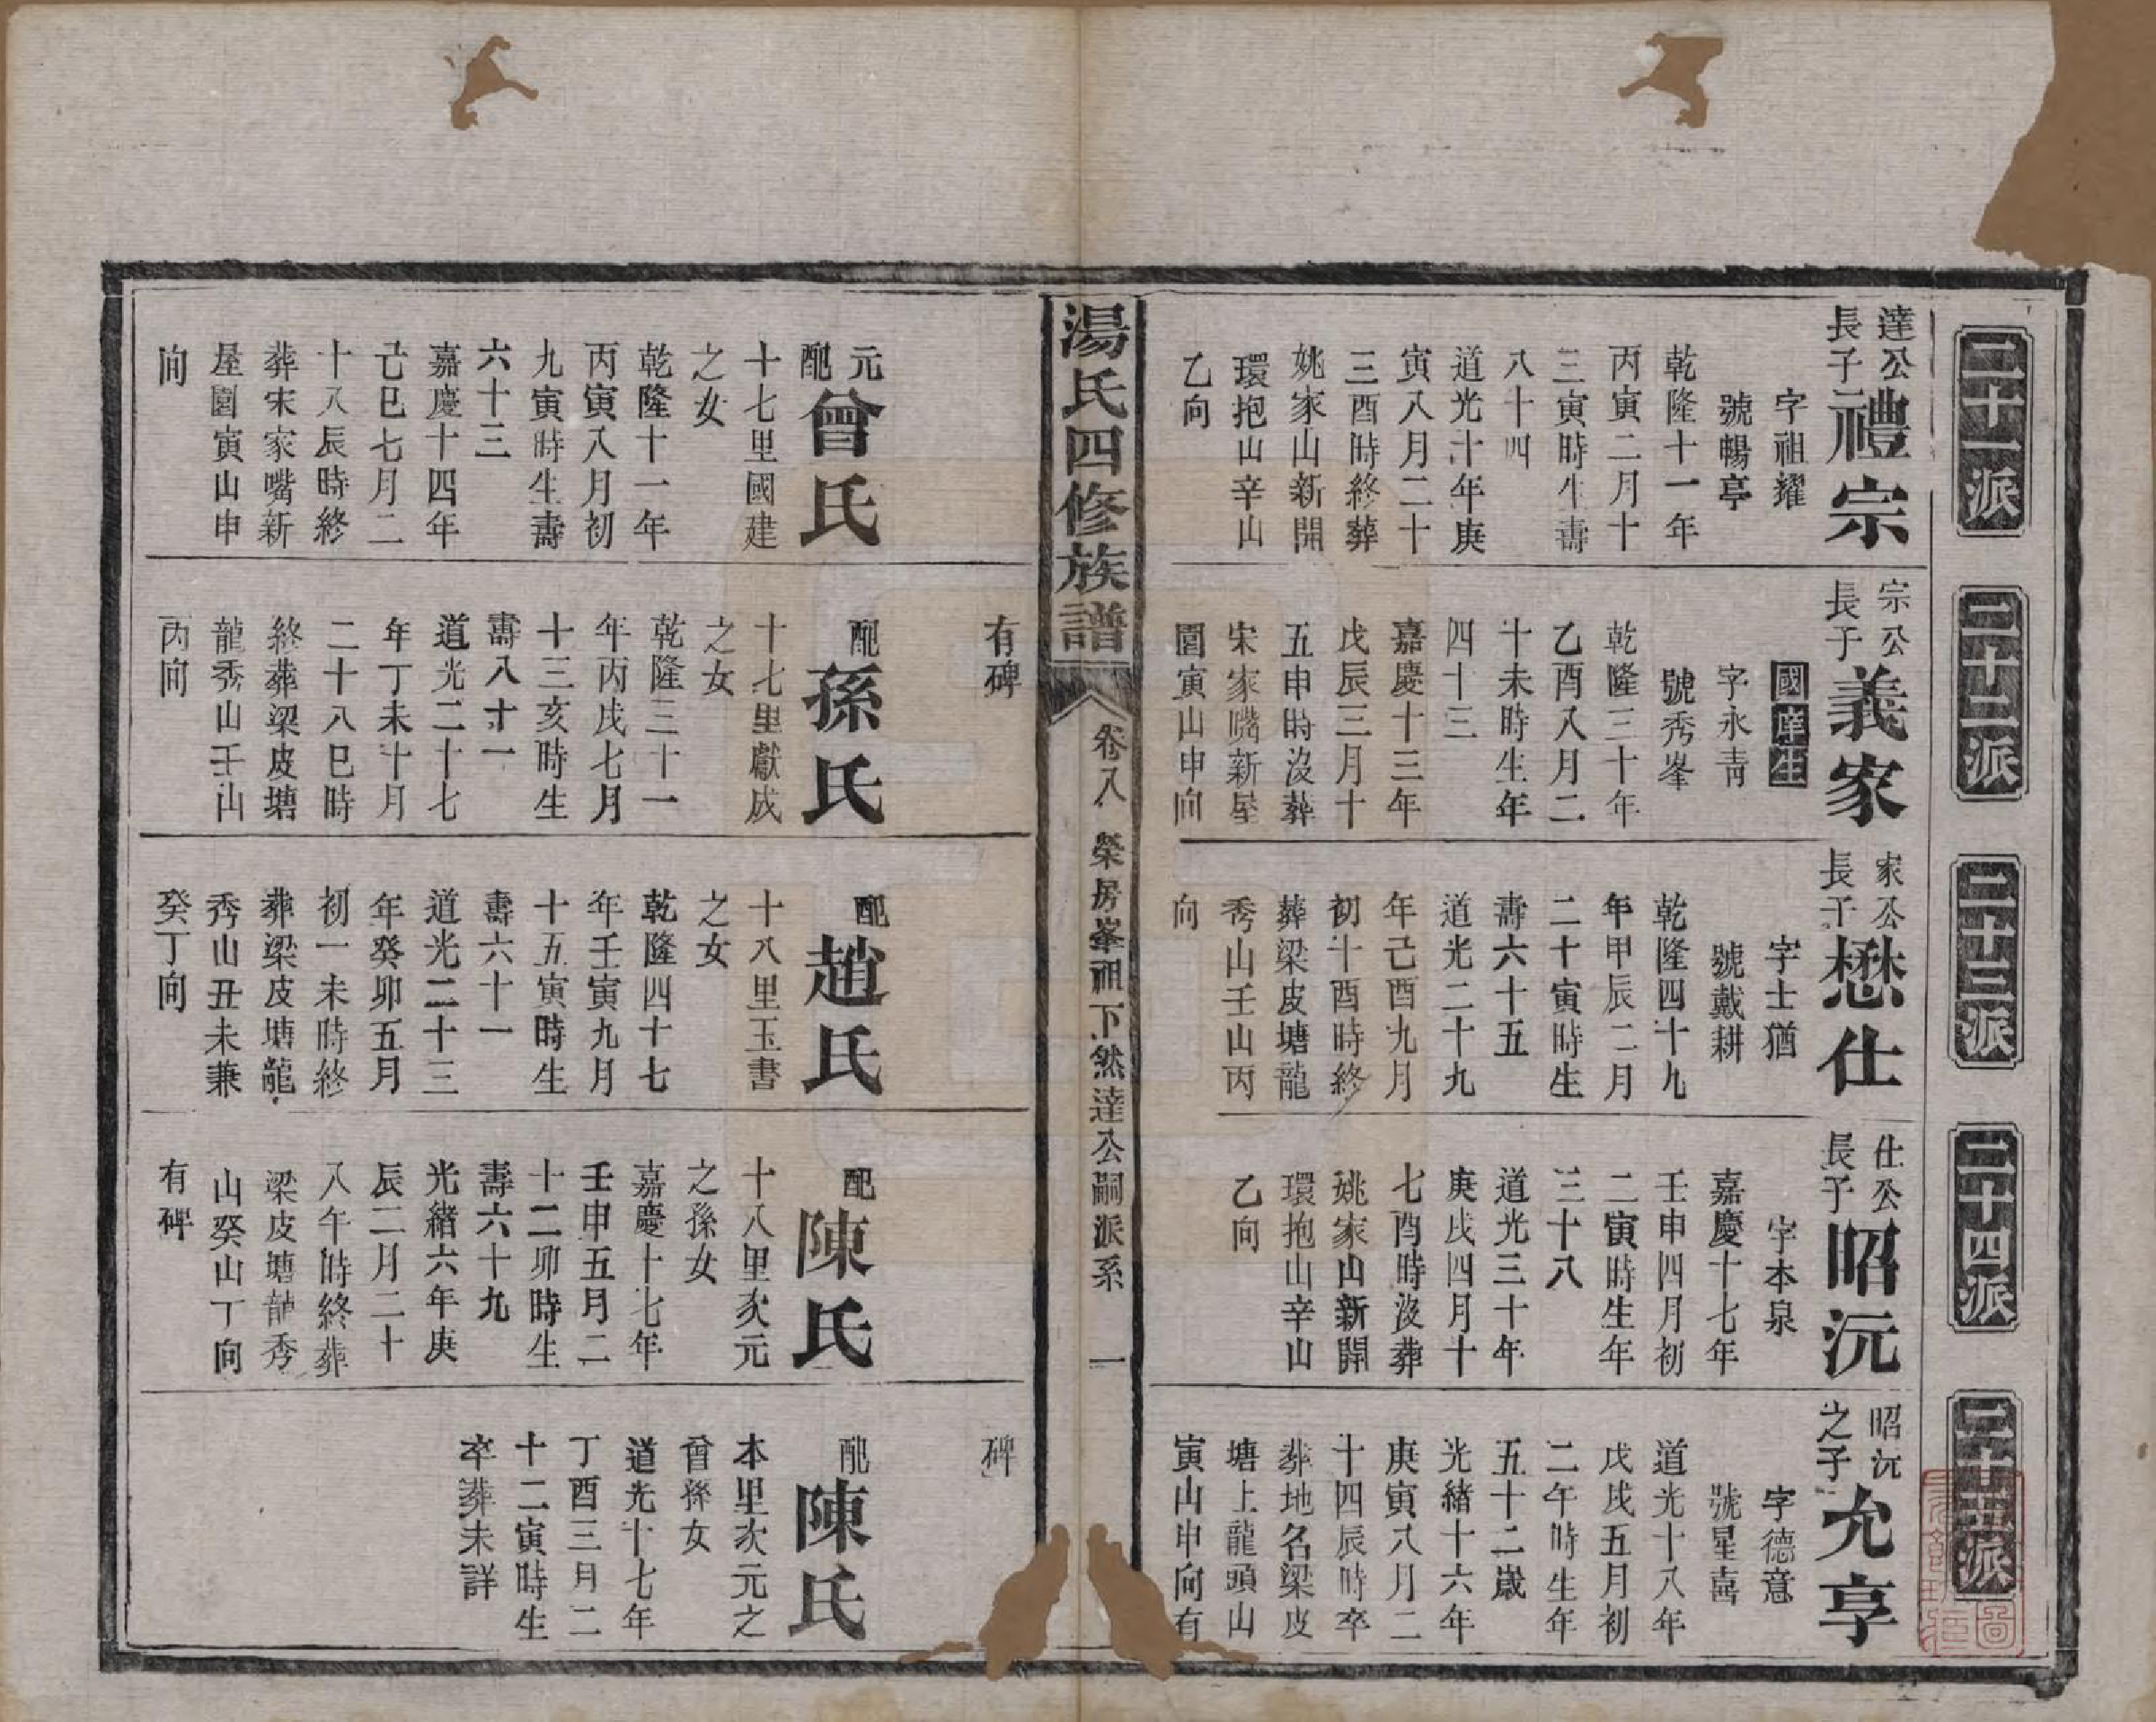 二十一派
達公
長子
禮宗
字祖耀
號暢亭
乾隆十一年
丙寅二月十
三寅時生壽
八十四
道光十年庚
寅八月二十
三酉時終葬
姚家山新開
環抱山辛山
乙向
二十二派
宗公
長子
義家
國庠生
字永青
號秀峯
乾隆三十年
乙酉八月二
十未時生年
四十三
嘉慶十三年
戊辰三月十
五申時沒葬
宋家嘴新屋
園寅山申向
有碑
二十三派
家公
長子
懋仕
字士猶
號戴耕
乾隆四十九
年甲辰二月
二十寅時生
壽六十五
道光二十九
年己酉九月
初十酉時終
葬梁皮塘龍
秀山壬山丙
向
二十四派
仕公
長子
昭沅
字本泉
嘉慶十七年
壬申四月初
二寅時生年
三十八
道光三十年
庚戌四月十
七酉時沒葬
姚家山新開
環抱山辛山
乙向
二十五派
昭沅
之子
允亨
字德意
號星喬
道光十八年
戊戌五月初
二午時生年
五十二歲
光緒十六年
庚寅八月二
十四辰時卒
葬地名梁皮
塘上龍頭山
寅山申向有
碑
湯氏四修族譜
卷八 榮房峯祖下然達公嗣派系 一
元
配
曾氏
十七里國建
之女
乾隆十一年
丙寅八月初
九寅時生壽
六十三
嘉慶十四年
己巳七月二
十八辰時終
葬宋家嘴新
屋園寅山申
向
配
孫氏
十七里獻成
之女
乾隆三十一
年丙戌七月
十三亥時生
壽八十一
道光二十七
年丁未十月
二十八巳時
終葬梁皮塘
龍秀山壬山
丙向
配
趙氏
十八里玉書
之女
乾隆四十七
年壬寅九月
十五寅時生
壽六十一
道光二十三
年癸卯五月
初一未時終
葬梁皮塘龍
秀山丑未兼
癸丁向
配
陳氏
十八里次元
之孫女
嘉慶十七年
壬申五月二
十二卯時生
壽六十九
光緒六年庚
辰二月二十
八午時終葬
梁皮塘龍秀
山癸山丁向
有碑
配
陳氏
本里次元之
曾孫女
道光十七年
丁酉三月二
十二寅時生
卒葬未詳